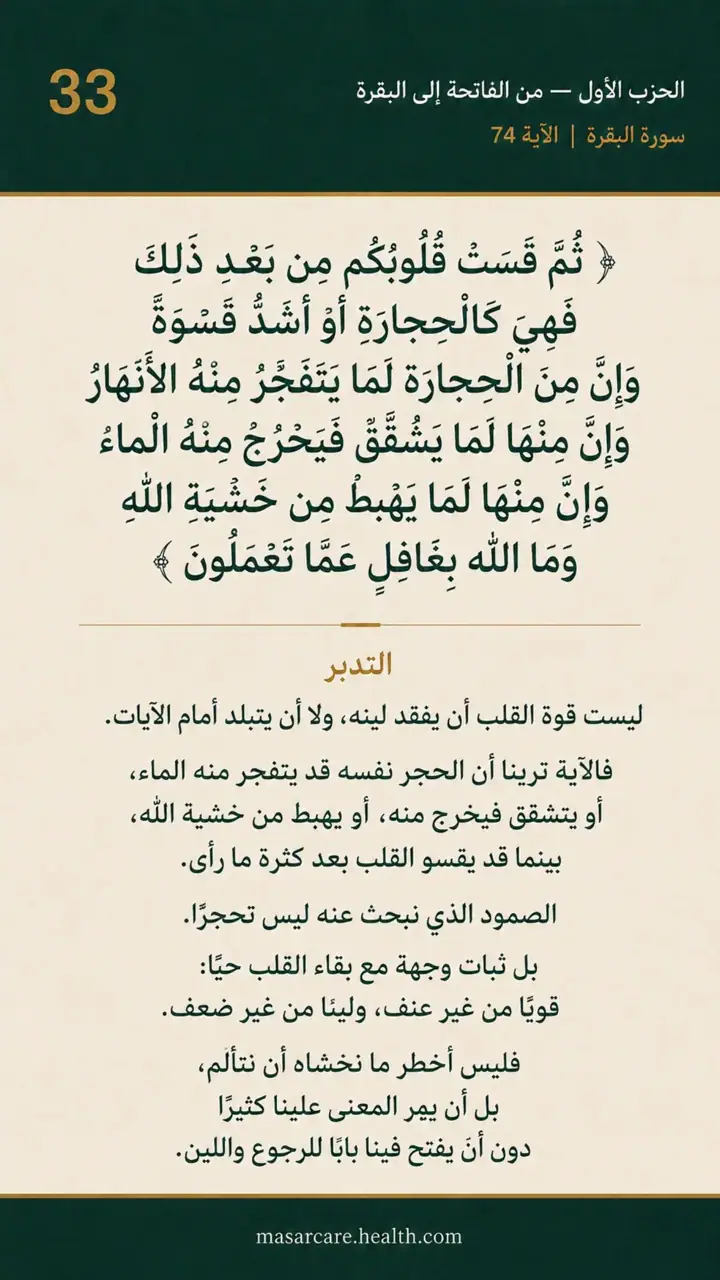 33
الحزب الأول — من الفاتحة إلى البقرة
سورة البقرة | الآية 74
﴿ ثُمَّ قَسَتْ قُلُوبُكُم مِن بَعْدِ ذَلِكَ
فَهِيَ كَالْحِجارَةِ أوْ أشَدُّ قَسْوَةً
وَإِنَّ مِنَ الْحِجارَة لَمَا يَتَفَجَّرُ مِنْهُ الأَنَهَارُ
وَإِنَّ مِنْهَا لَمَا يَشُقَّقِّ فَيَحْرُجُ مِنْهُ الْماءُ
وَإِنَّ مِنْهَا لَمَا يَهْبطُ مِن خَشْيَةِ اللهِ
وَمَا الله بِغَافِلٍ عَمَّا تَعْمَلُونَ ﴾
التدبر
ليست قوة القلب أن يفقد لينه، ولا أن يتبلد أمام الآيات.
فالآية ترينا أن الحجر نفسه قد يتفجر منه الماء،
أو يتشقق فيخرج منه، أو يهبط من خشية الله،
بينما قد يقسو القلب بعد كثرة ما رأى.
الصمود الذي نبحث عنه ليس تحجرًا.
بل ثبات وجهة مع بقاء القلب حيًا:
قويًا من غير عنف، وليئا من غير ضعف.
فليس أخطر ما نخشاه أن نتألم،
بل أن يمِر المعنى علينا كثيرًا
دون أنَ يفتح فينا بابًا للرجوع واللين.
masarcare.health.com